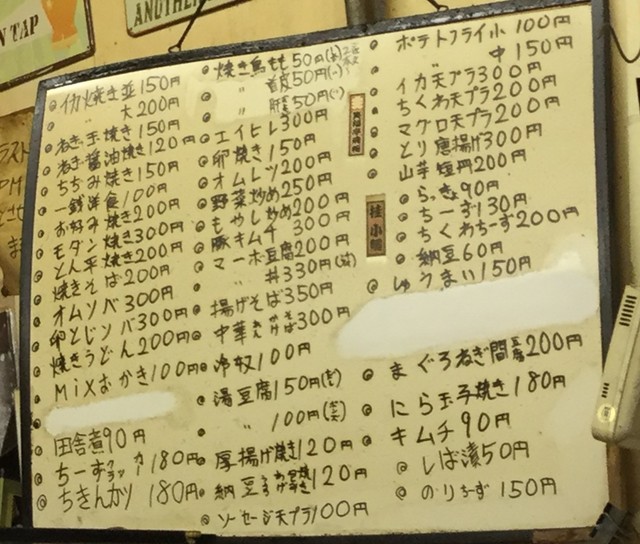 N TAP
ANOTHER
イカ焼き並150円
〃 大200円
ねぎ玉焼き150円
ねぎ醤油焼き120円
ちぢみ焼き150円
一銭洋食100円
お好み焼き200円
モダン焼き300円
とん平焼き200円
焼きそば200円
オムソバ300円
卵とじソバ300円
焼きうどん200円
Mixおかき100円
田舎煮90円
ちーずクラッカー180円
ちきんカツ180円
焼き鳥もも50円
〃 首皮50円
〃 肝50円
エイヒレ300円
卵焼き150円
オムレツ200円
野菜炒め250円
もやし炒め200円
豚キムチ300円
マーボ豆腐200円
〃 丼330円
揚げそば350円
中華そば300円
冷奴100円
湯豆腐150円
〃 100円
厚揚げ焼き120円
納豆 120円
ソーセージ天プラ100円
ポテトフライ小100円
中150円
イカ天プラ300円
ちくわ天プラ200円
マグロ天プラ200円
とり唐揚げ300円
山芋短冊200円
らっきょ90円
ちーず130円
ちくわちーず200円
納豆60円
しゅうまい150円
桂小
まぐろねぎ間 200円
にら玉子焼き180円
キムチ90円
しば漬50円
のりちーず150円